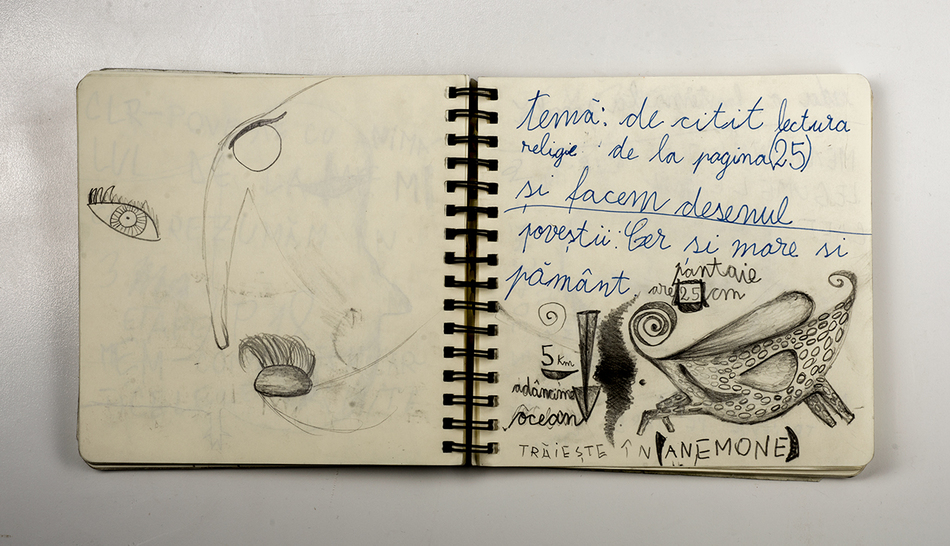 temă: de citit lectura
religie de la pagina (25)
și facem desenul
poveștii: Cer si mare si
pământ
pantaie
are 25 cm
5 Km
adâncime
ocean
TRĂIEȘTE ÎN (ANEMONE)